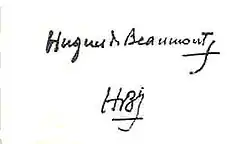 Hugues de Beaumont
HB